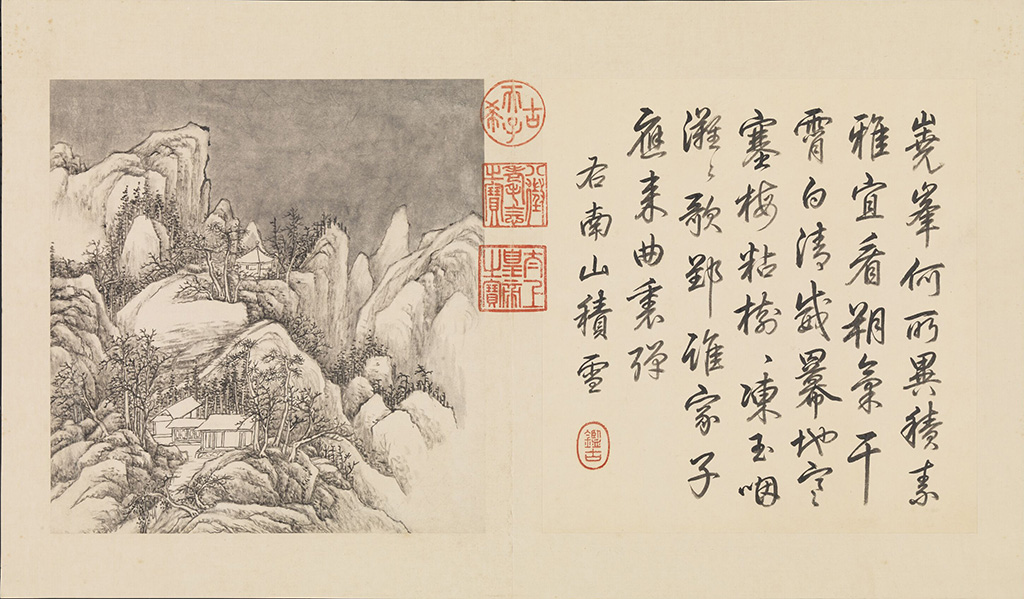 嶢峯何所異積素
雅宜看朔氣干
霄白清威羃地寒
塞梅粘樹〻凍玉咽
灘〻歌郢誰家子
應来曲裏弹
右南山積雪
鑑古
古希天子
八徵耄念之寶
太上皇帝之寶